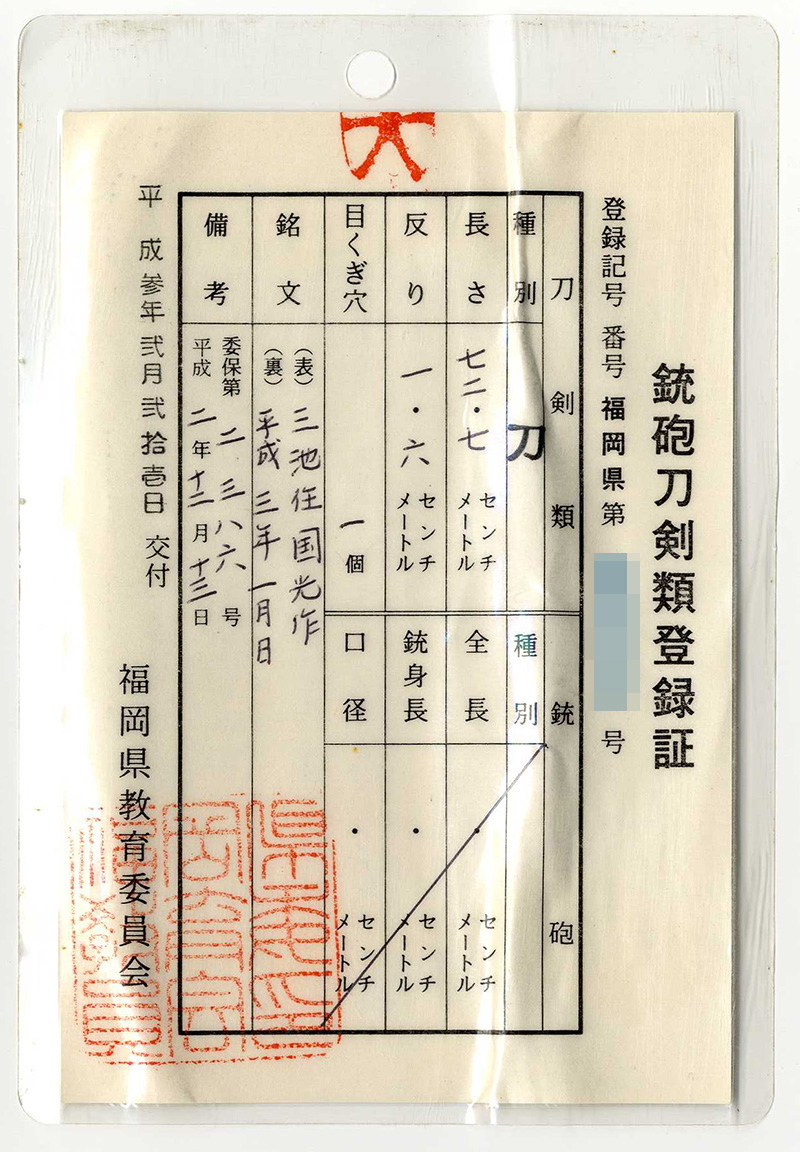 銃砲刀剣類登録証
登録記号 番号 福岡県 第 号
刀剣類
種別 刀
長さ 七二・七 センチメートル
反り 一・六 センチメートル
目くぎ穴 一個
銘文 (表) 三池住国光作
(裏) 平成三年一月日
備考 委保第二三八六号
平成二年十二月十三日
銃砲
種別
全長 ・ センチメートル
銃身長 ・ センチメートル
口径 ・ センチメートル
平成参年弐月弐拾壱日 交付
福岡県教育委員会